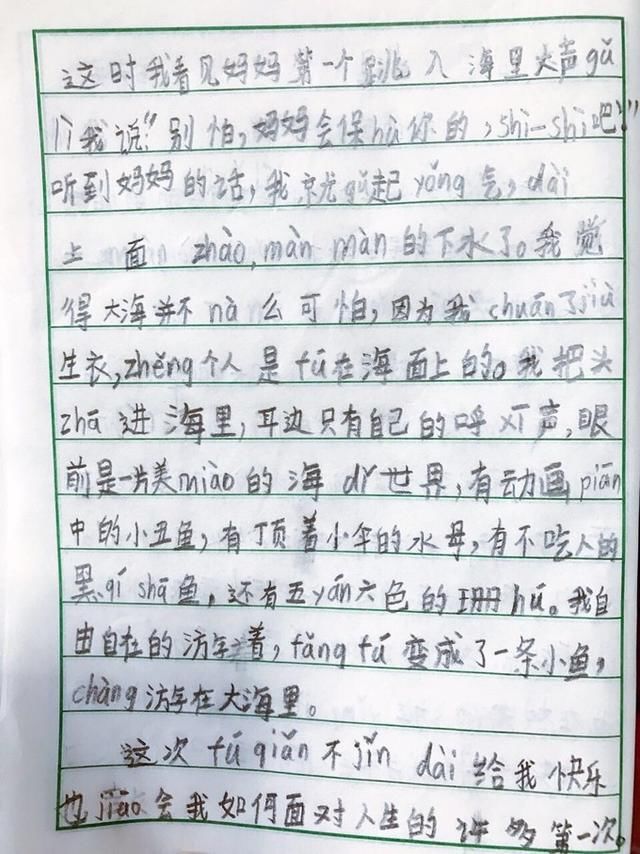 这时我看见妈妈第一个跳入海里大声gǔ
lì我说“别怕，妈妈会保hù你的，shì-shì吧!”
听到妈妈的话，我就gǔ起yǒng气，dài
上面zhào，màn màn的下水了。我觉
得大海并不nà么可怕，因为我chuān了jiù
生衣，zhěng个人是fú在海面上的。我把头
zhā进海里，耳边只有自己的呼xī声，眼
前是一片美miào的海dǐ世界，有动画piān
中的小丑鱼，有顶着小伞的水母，有不吃人的
黑qí shā鱼，还有五yán六色的珊hú。我自
由自在的游着，fǎng fú变成了一条小鱼，
chàng游在大海里。
这次fú qiǎn不jǐn dài给我快乐
也jiāo会我如何面对人生的许多第一次。